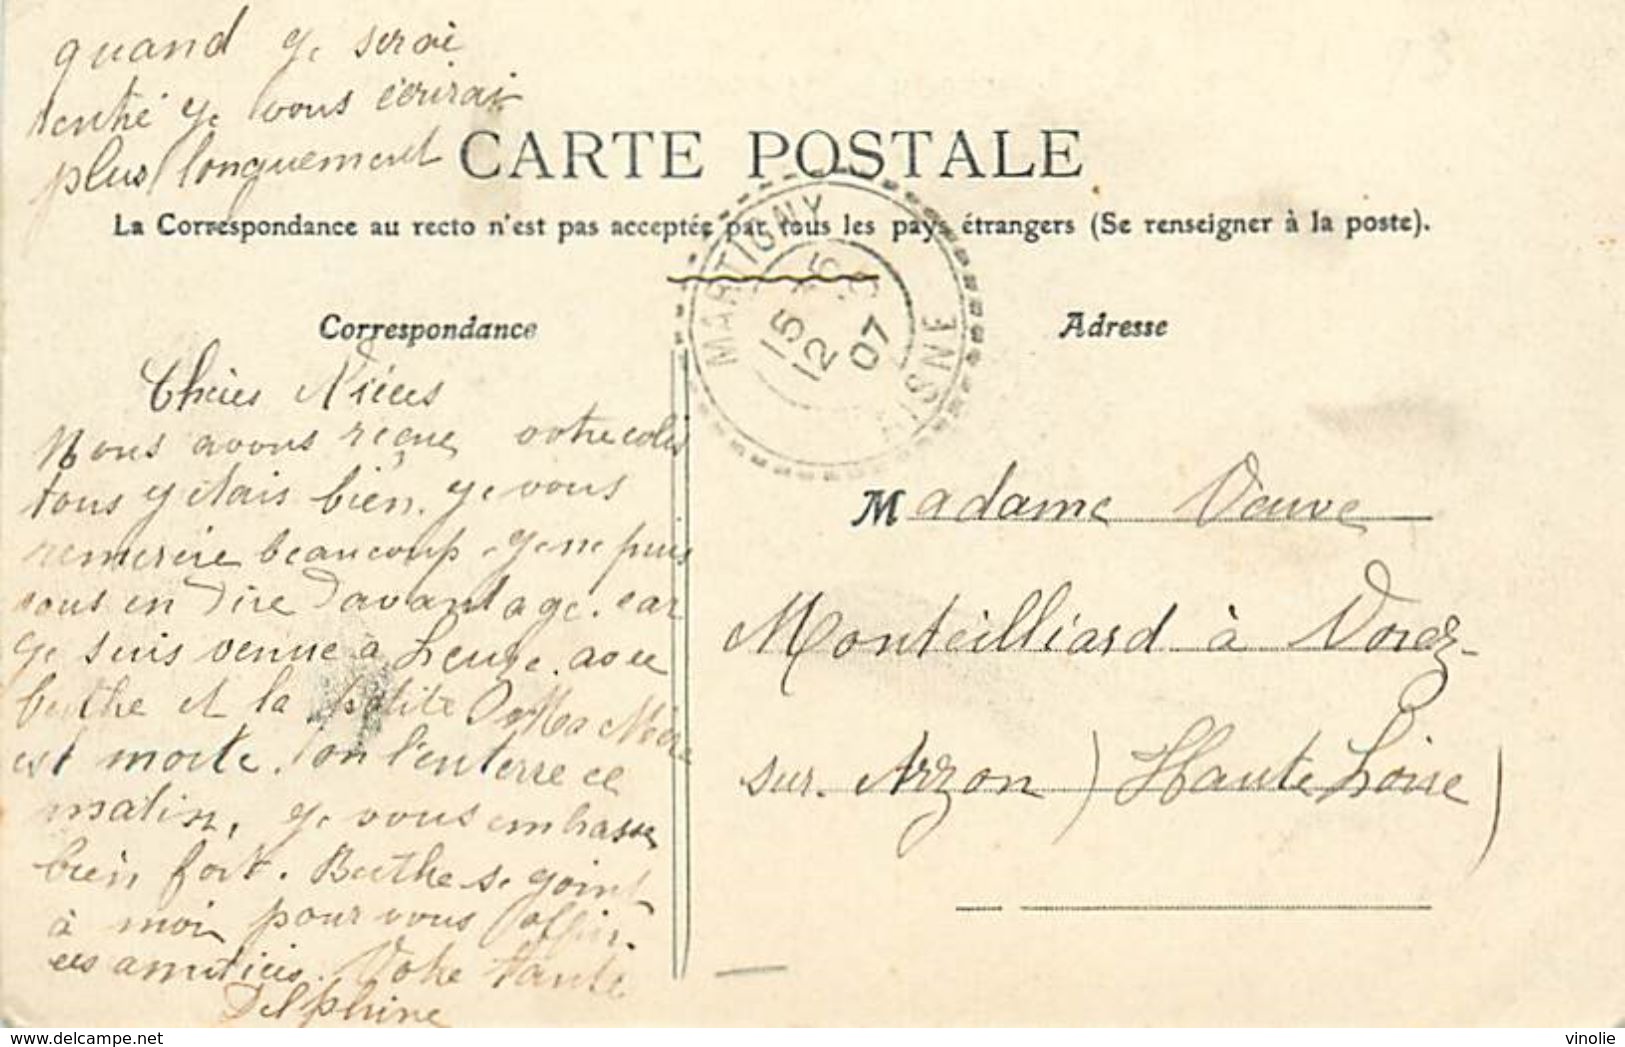 quand ye serai
rentré ye vous écrirai
plus longuement
CARTE POSTALE
La Correspondance au recto n'est pas acceptée par tous les pays étrangers (Se renseigner à la poste).
MARTIGNY
15
12
07
AISNE
Correspondance
Adresse
Chères Nièces
Nous avons reçue votre colis
tous y étais bien. ye vous
remercie beaucoup. ye ne puis
vous en dire davantage. car
ye suis venue à Leuze. avec
berthe et la petite Ma Mère
est morte. on l'enterre ce
matin, ye vous embrasse
bien fort. Berthe se goint
à moi pour vous offrir
ces amitiés. Votre tante
Delphine
Madame Veuve
Monteilliard à Vorez-
sur. Arzon (Haute Loire)
vinolie